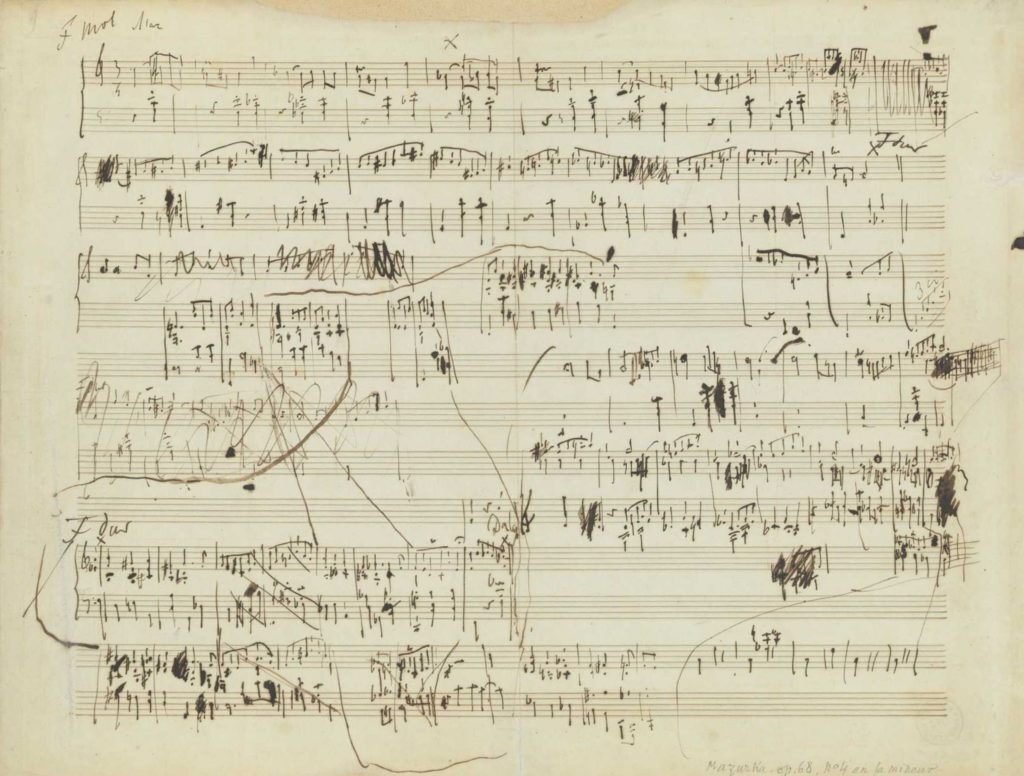 F mol Maz
F dur
F dur
Mazurka op. 68, nº 4 en fa mineur